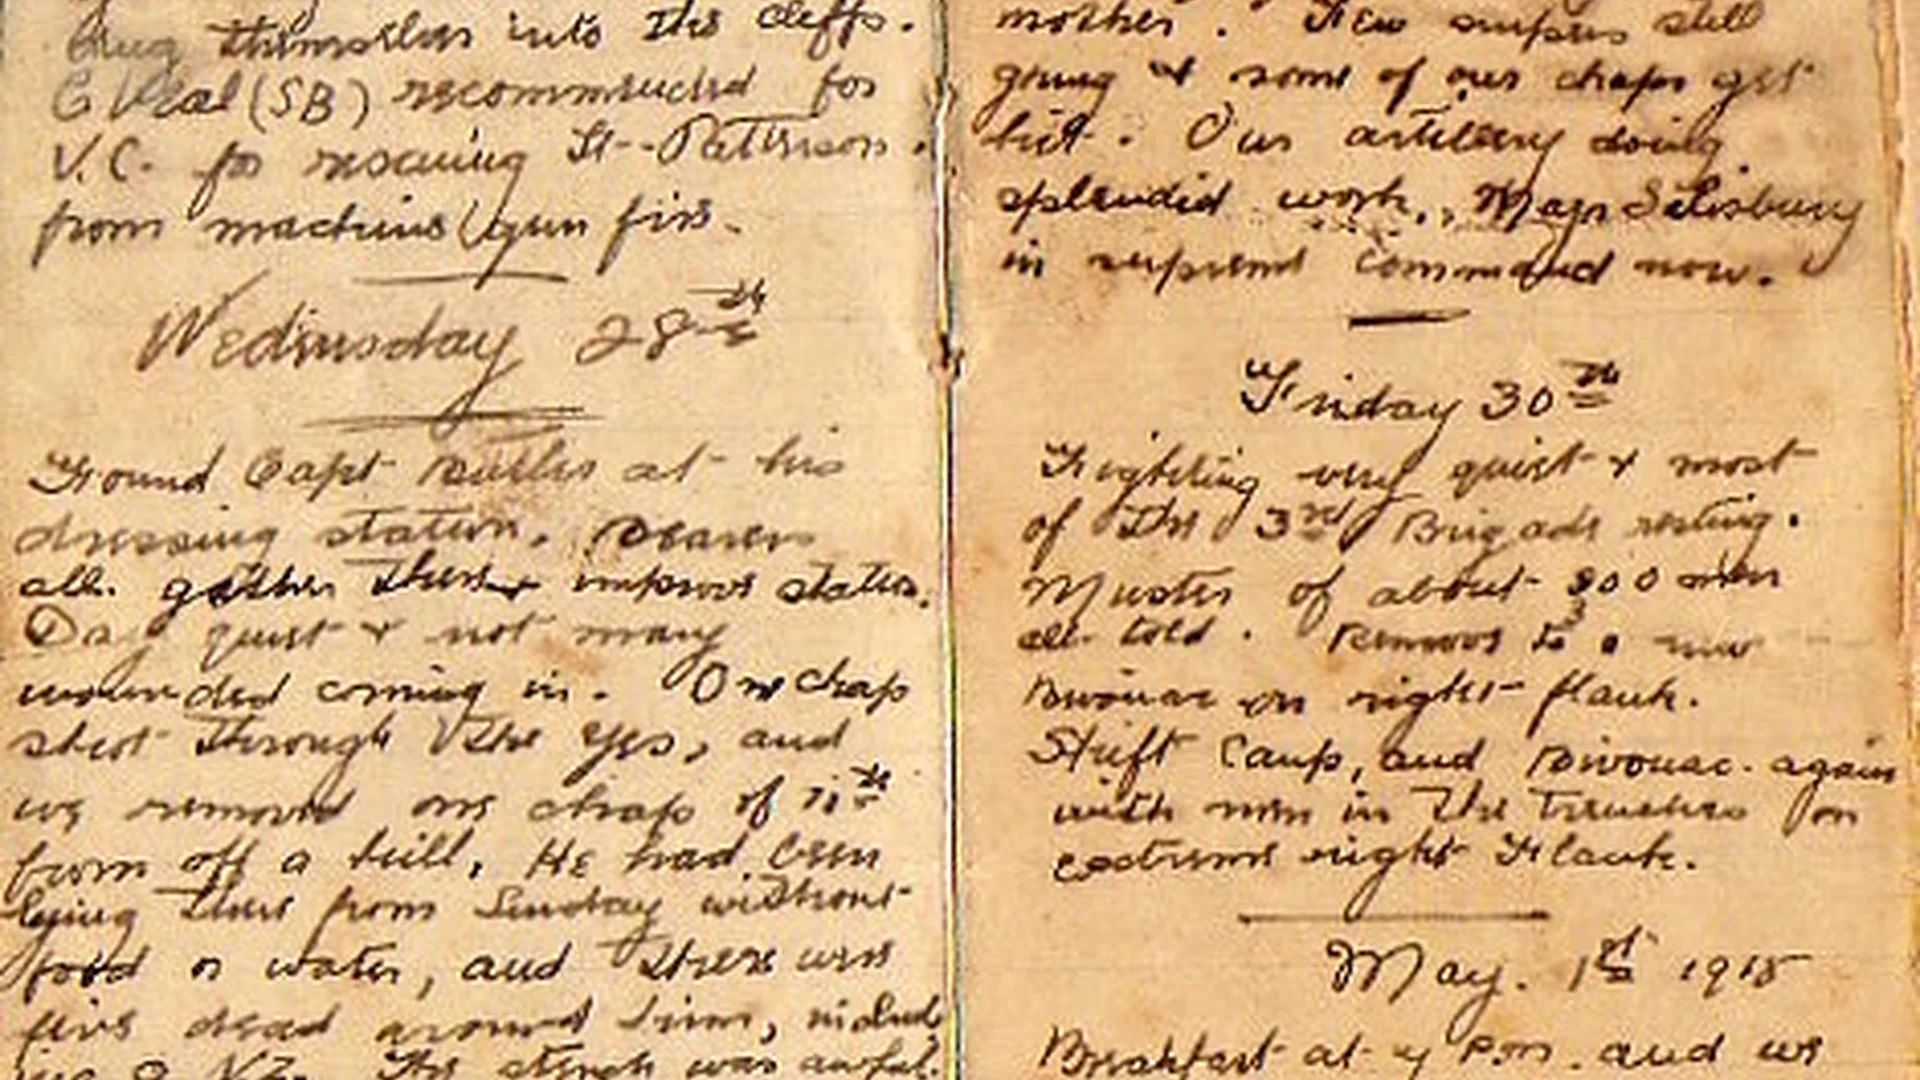 themselves into the cliffs.
(SB) recommended for
V.C. for rescuing Lt. Patterson
from machine gun fire.
Wednesday 28th
Found Capt Butler at his
dressing station. Bearers
all gather there & improve station.
Day quiet & not many
wounded coming in. One chap
shot through the eyes, and
we removed one chap of 11th
from off a hill. He had been
lying there from Sunday without
food or water, and there were
five dead around him, includ
ing 2 N.Z. The stench was awful.
mother. Few snipers still
going & some of our chaps get
hit. Our artillery doing
splendid work. Major Salisbury
in supreme command now.
Friday 30th
Fighting very quiet & most
of the 3rd Brigade resting.
Muster of about 900 men
all told. Remove to a new
Bivouac on right flank.
Shift Camp, and Bivouac again
with men in the trenches on
extreme right Flank.
May. 1st 1915
Breakfast at 4 P.m. and we